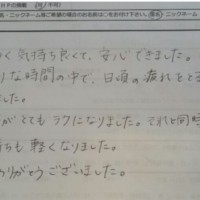 HPの掲載 可 不可
名・ニックネーム等ご希望の場合のお名前は○をお付け下さい。 匿名 ニックネーム
く 気持ち良くて、安心できました。
な時間の中で、日頃の疲れをとる
がとてもラクになりました。それと同時
ちも軽くなりました。
りがとうございました。